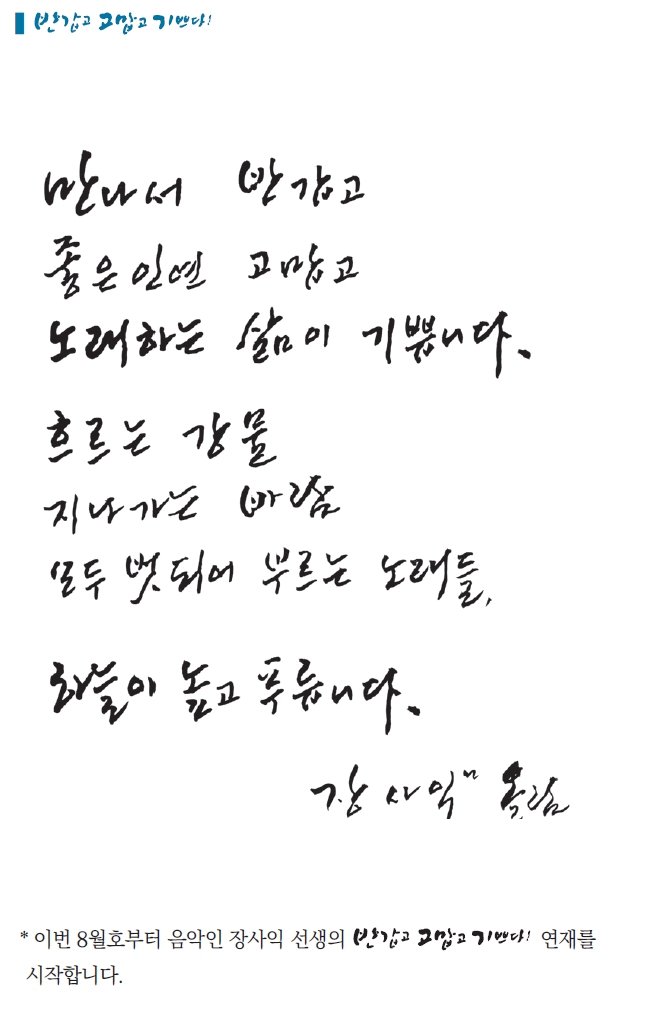 반갑고 고맙고 기쁘다!
만나서 반갑고
좋은 인연 고맙고
노래하는 삶이 기쁩니다.
흐르는 강물
지나가는 바람
모두 벗 되어 부르는 노래들,
하늘이 높고 푸릅니다.
장사익 올림
* 이번 8월호부터 음악인 장사익 선생의 반갑고 고맙고 기쁘다! 연재를
시작합니다.